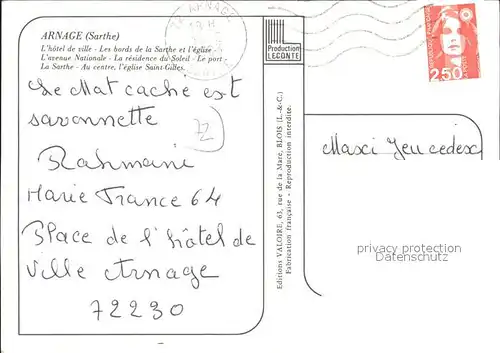 ARNAGE (Sarthe)
L'hôtel de ville - Les bords de la Sarthe et l'église -
L'avenue Nationale - La résidence du Soleil - Le port -
La Sarthe - Au centre, l'église Saint-Gilles.
Le Mat cache est
savonnette
Rahmani
Marie France 64
Place de l'hôtel de
ville Arnage
72230
ARNAGE
Production
LECONTE
Editions VALOIRE, 63, rue de la Mare, BLOIS (L.-&-C.)
Fabrication française - Reproduction interdite.
2,50
Maxi Jeu cedex
privacy protection
Datenschutz